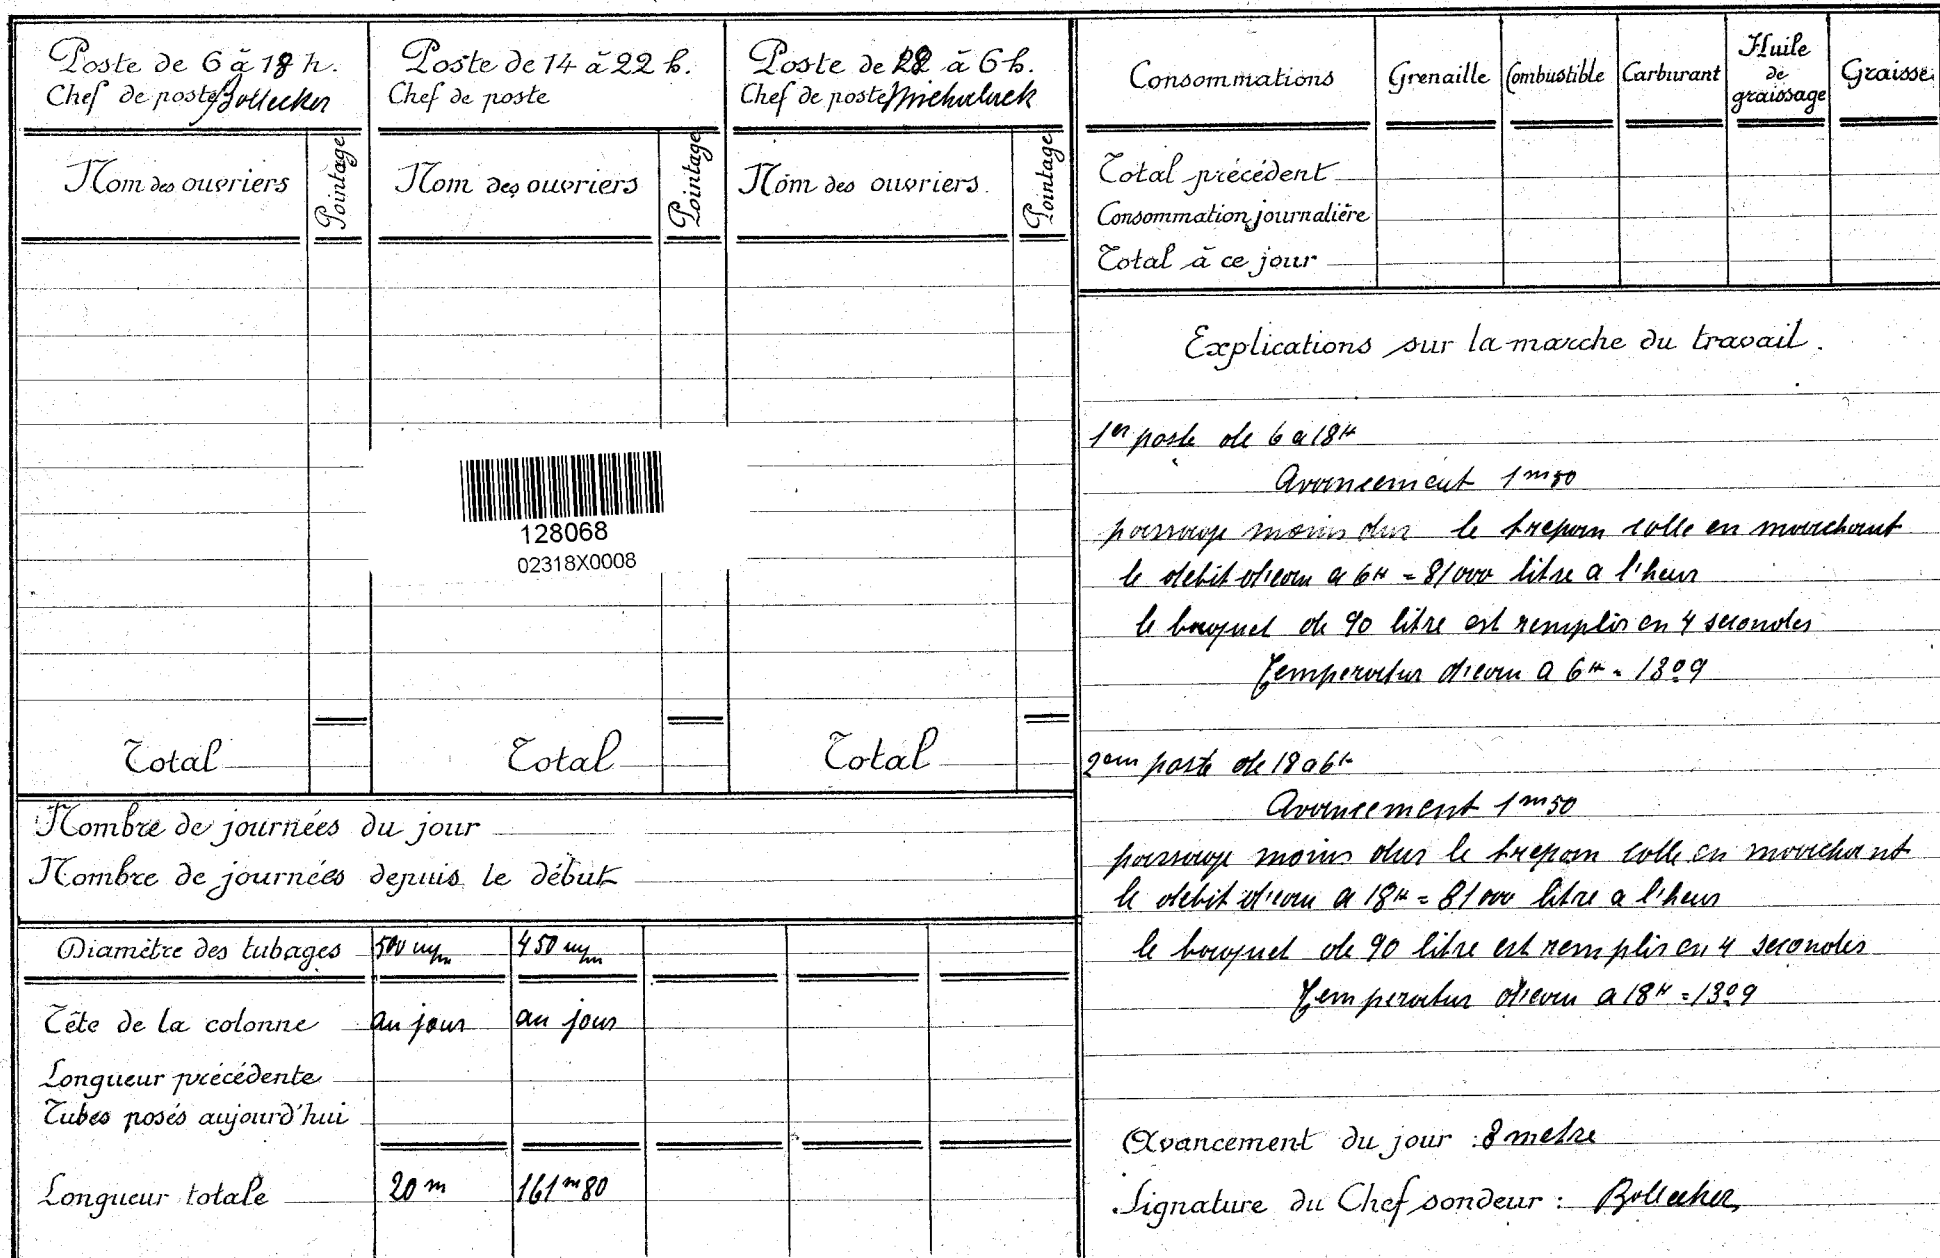 Poste de 6 à 18 h.
Chef de poste Bollecker
Poste de 14 à 22 h.
Chef de poste
Poste de 18 à 6 h.
Chef de poste
Nom des ouvriers
Pointage
Nom des ouvriers
Pointage
Nom des ouvriers
Pointage
Total
Total
Total
128068
02318X0008
Nombre de journées du jour
Nombre de journées depuis le début
Diamètre des tubages 500 mm 450 mm
Tête de la colonne au jour au jour
Longueur précédente
Tubes posés aujourd'hui
Longueur totale 20 m 161 m 80
Consommations Grenaille Combustible Carburant Huile de graissage Graisse
Total précédent
Consommation journalière
Total à ce jour
Explications sur la marche du travail.
1er poste de 6 a 18 H
Avancement 1 m 50
passage moins dur le trepan colle en marchant
le debit d'eau a 6 H = 81000 litre a l'heur
le baquet de 90 litre est remplis en 4 secondes
Temperatur d'eau a 6 H = 13°9
2em poste de 18 a 6 h
Avancement 1 m 50
passage moins dur le trepan colle en marchant
le debit d'eau a 18 H = 81000 litre a l'heur
le baquet de 90 litre est remplis en 4 secondes
Temperatur d'eau a 18 H = 13°9
Avancement du jour : 3 metre
Signature du Chef sondeur : Bollecker